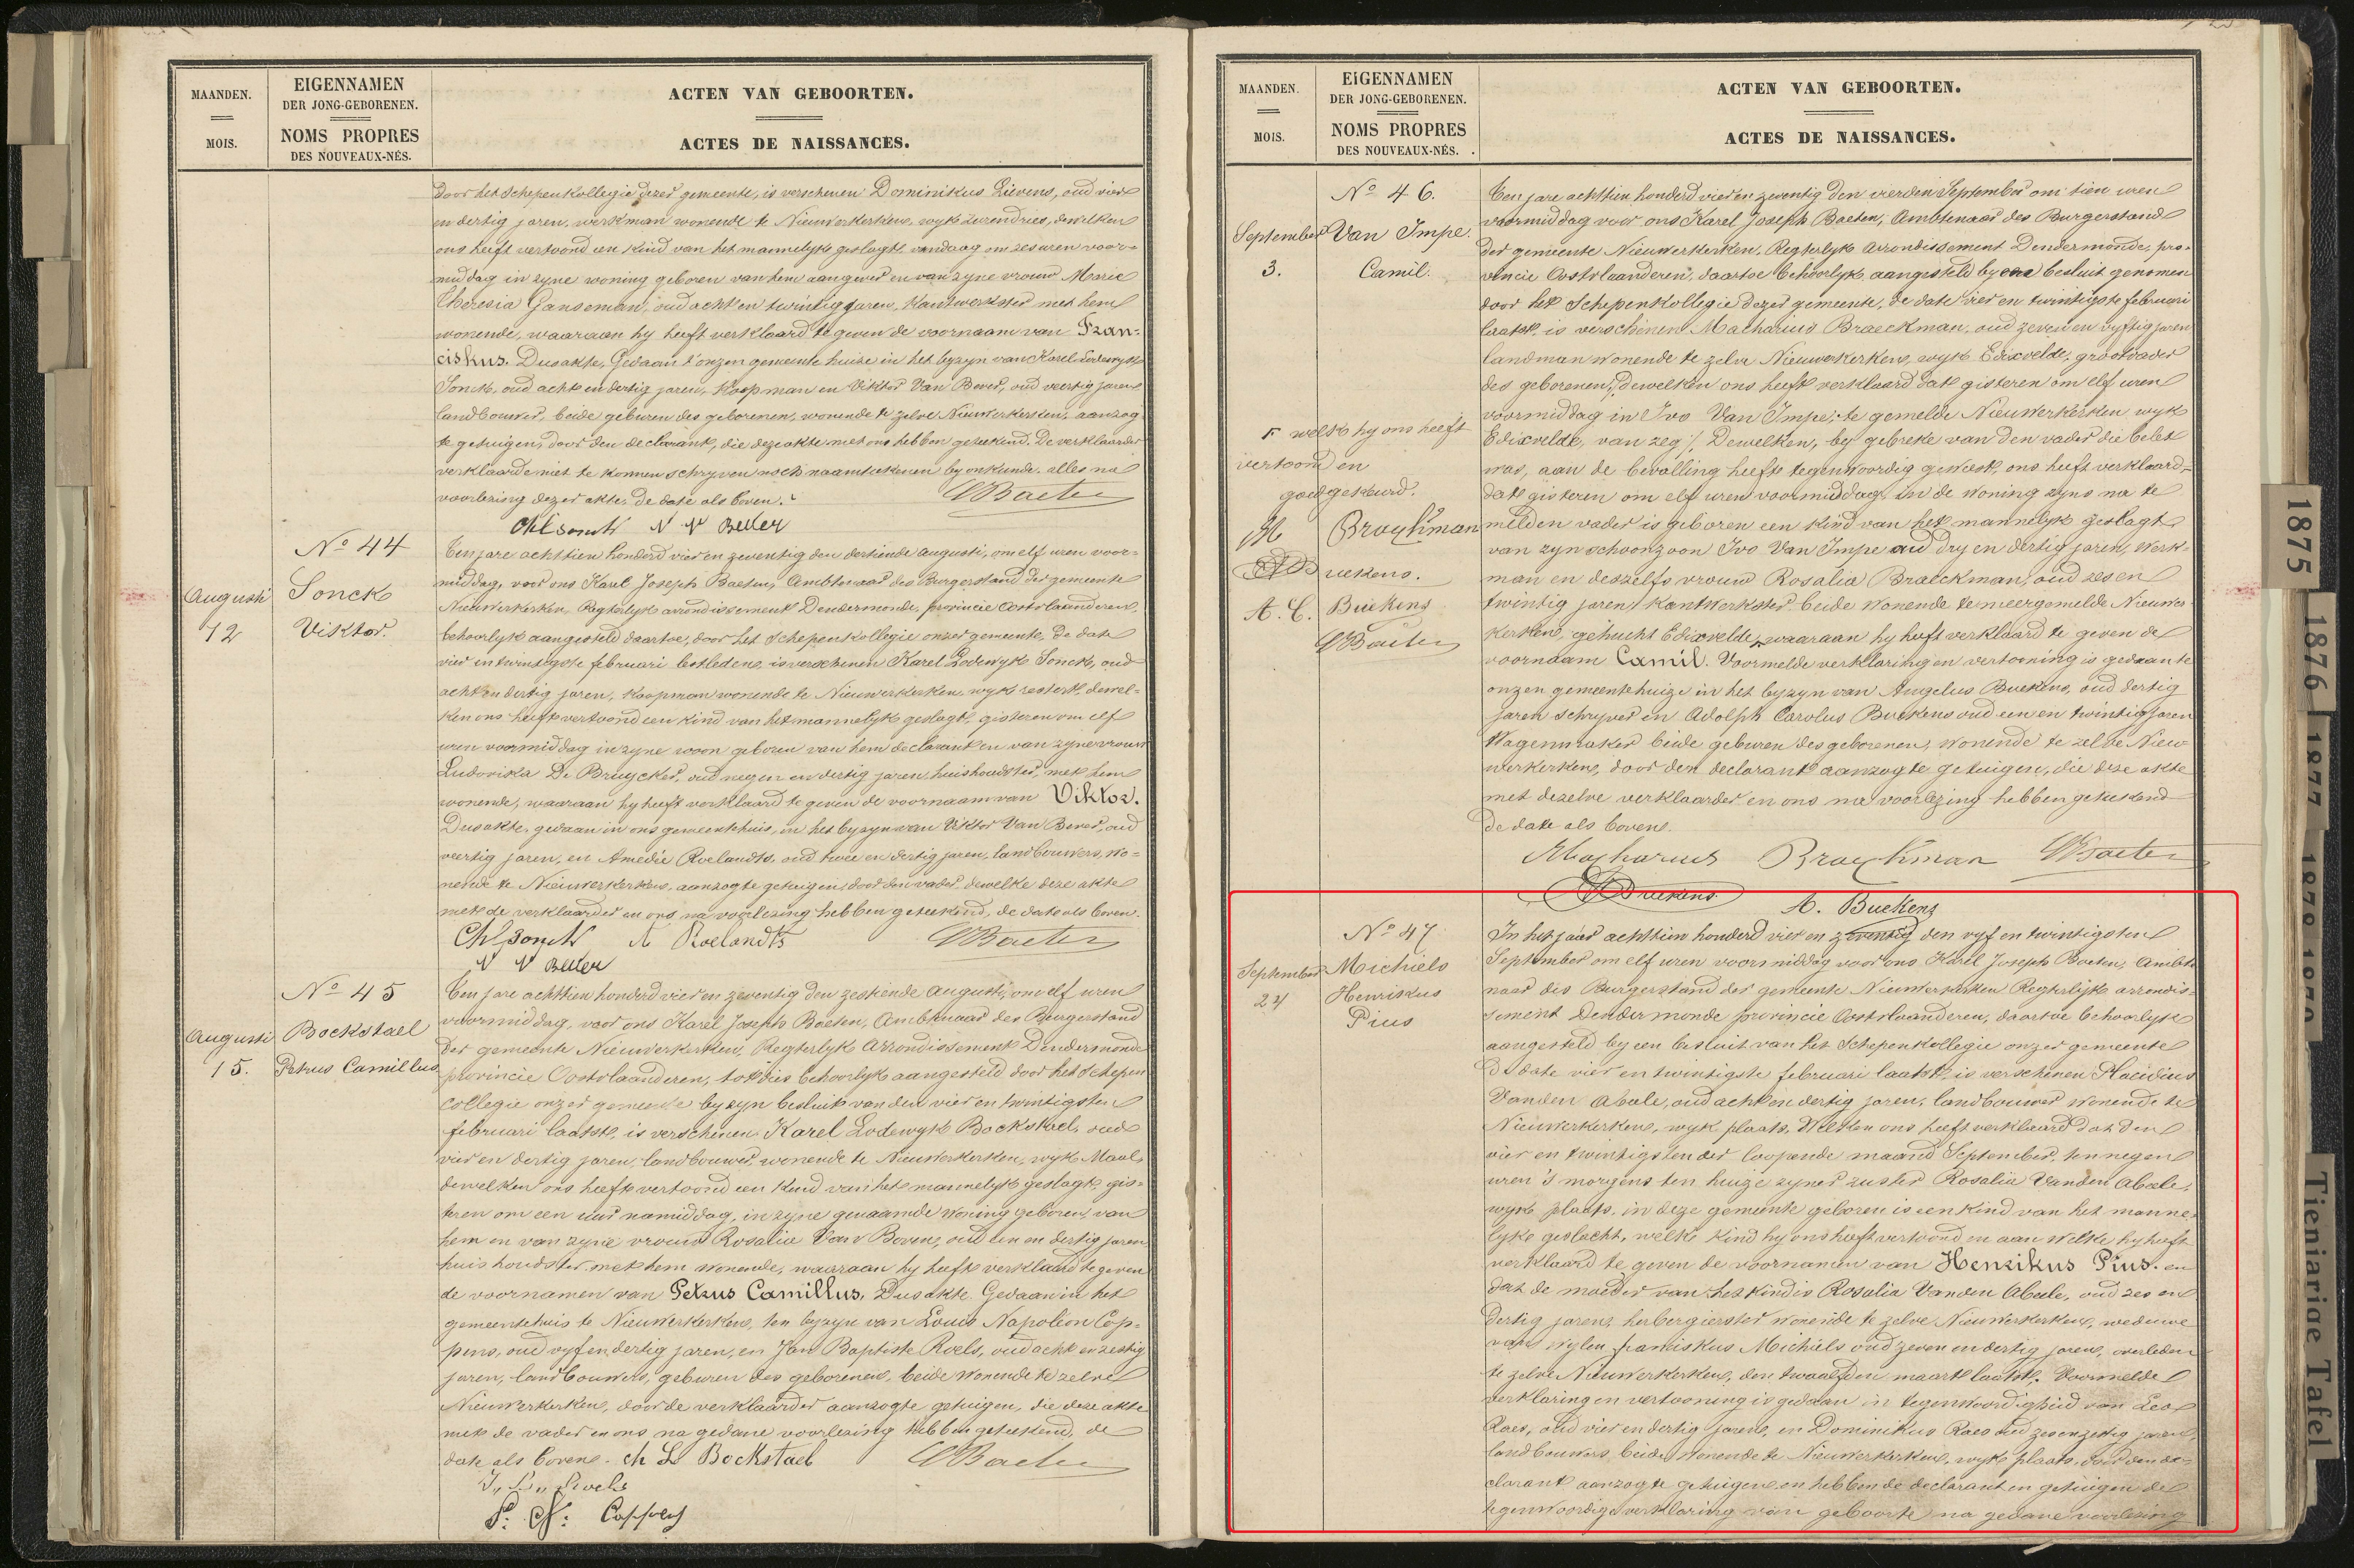 MAANDEN.
MOIS.
EIGENNAMEN
DER JONG-GEBORENEN.
NOMS PROPRES
DES NOUVEAUX-NÉS.
ACTEN VAN GEBOORTEN.
ACTES DE NAISSANCES.
door het Schepenkollegie dezer gemeente, is verschenen Dominikus Lievens, oud vier
en dertig jaren, werkman wonende te Nieuwerkerken, wyk Zurendries, dewelken
ons heeft vertoond een kind van het mannelyk geslagt, vandaag om zes uren voor-
middag in zyne woning geboren van hem aangever en van zyne vrouw Marie
Theresia Ganseman, oud acht en twintig jaren, kantwerkster met hem
wonende, waaraan hy heeft verklaard te geven de voornaam van Fran-
ciskus. Dusakte, Gedaan t'onzen gemeente huize in het byzyn van Karel Lodewyk
Sonck, oud acht en dertig jaren, koopman en Viktor Van Bever, oud veertig jaren
landbouwer, beide geburen des geborenen, wonende te zelve Nieuwerkerken, aanzog
te getuigen, door den declarant, die deze akte met ons hebben geteekend. De verklaarder
verklaarde niet te konnen schryven noch naamteekenen by onkunde. alles na
voorlezing dezer akte, de date als boven.
Ch L Sonck V V Bever
N° 44
Augusti
12
Sonck
Viktor.
Ten jare achttien honderd vier en zeventig den dertiende augusti, om elf uren voor-
middag, voor ons Karel Joseph Baeten, Ambtenaar des Burgerstand der gemeente
Nieuwerkerken, Regterlyk arrondissement Dendermonde, provincie Oostvlaanderen,
behoorlyk aangesteld daartoe, door het Schepenkollegie onzer gemeente, de date
vier en twintigste februari lestleden, is verschenen Karel Lodewyk Sonck, oud
acht en dertig jaren, koopman wonende te Nieuwerkerken, wyk restert, dewel-
ken ons heeft vertoond een kind van het mannelyk geslagt, gisteren om elf
uren voormiddag in zyne woon geboren van hem declarant en van zyne vrouw
Ludovika De Bruycker, oud negen en dertig jaren, huishoudster, met hem
wonende, waaraan hy heeft verklaard te geven de voornaam van Viktor.
Dusakte, gedaan in ons gemeentehuis, in het byzyn van Viktor Van Bever, oud
veertig jaren, en Amedie Roelandts, oud twee en dertig jaren, landbouwers, wo-
nende te Nieuwerkerken, aanzogte getuigen, door den vader, dewelke deze akte
met de verklaarder en ons na voorlezing hebben geteekend, de date als boven.
Ch L Sonck A Roelandts
V V Bever
N° 45
Augusti
15.
Bockstael
Petrus Camillus
Ten jare achttien honderd vier en zeventig den zestiende Augusti, om elf uren
voormiddag, voor ons Karel Joseph Baeten, Ambtenaar des Burgerstand
der gemeente Nieuwerkerken, Regterlyk Arrondissement Dendermonde
provincie Oostvlaanderen, tot dies behoorlyk aangesteld door het Schepen
collegie onzer gemeente by zyn besluit van den vier en twintigsten
februari laatst, is verschenen Karel Lodewyk Bockstael, oud
vier en dertig jaren, landbouwer, wonende te Nieuwerkerken, wyk Maal,
dewelken ons heeft vertoond een kind van het mannelyk geslagt, gis-
teren om een uur namiddag, in zyne genaamde woning geboren, van
hem en van zyne vrouw Rosalia Van Boven, oud een en dertig jaren,
huishoudster met hem wonende, waaraan hy heeft verklaard te geven
de voornamen van Petrus Camillus, Dusakte. Gedaan in het
gemeentehuis te Nieuwerkerken, ten byzyn van Louis Napoléon Cop-
pens, oud vyf en dertig jaren, en Jan Baptiste Roels, oud acht en zestig
jaren, landbouwers, geburen des geborenen, beide wonende te zelve
Nieuwerkerken, door de verklaarder aanzogte getuigen, die deze akte
met de vader en ons na gedane voorlezing hebben geteekend, de
date als boven. ch L Bockstael
J. B. Roels
Coppens
MAANDEN.
MOIS.
EIGENNAMEN
DER JONG-GEBORENEN.
NOMS PROPRES
DES NOUVEAUX-NÉS.
ACTEN VAN GEBOORTEN.
ACTES DE NAISSANCES.
N° 46.
September
3.
Van Impe.
Camil.
Ten jare achttien honderd vier en zeventig den vierden September om tien uren
voormiddag voor ons Karel Joseph Baeten, Ambtenaar des Burgerstand
der gemeente Nieuwerkerken, Regterlyk Arrondissement Dendermonde, pro-
vincie Oostvlaanderen, daartoe behoorlyk aangesteld by een besluit genomen
door het Schepenkollegie dezer gemeente, de date vier en twintigste februari
laatst, is verschenen Macharius Braeckman, oud zeven en vyftig jaren
landman wonende te zelve Nieuwerkerken, wyk Edixvelde, grootvader
des geborenen, dewelken ons heeft verklaard dat gisteren om elf uren
voormiddag in Ivo Van Impe, te gemelde Nieuwerkerken wyk
Edixvelde, van zeg /. Dewelken, by gebreke van den vader die belet
was, aan de bevalling heeft tegenwoordig geweest, ons heeft verklaard
dat gisteren om elf uren voormiddag, in de woning zyns na te
melden vader is geboren een kind van het mannelyk geslagt
van zyn schoonzoon Ivo Van Impe oud dry en dertig jaren, werk-
man en deszelfs vrouw Rosalia Braeckman, oud zes en
twintig jaren, kantwerkster beide wonende te meergemelde Nieuwer
kerken, gehucht Edixvelde, waaraan hy heeft verklaard te geven de
voornaam Camil. Voormelde verklaring en vertooning is gedaan te
onzen gemeentehuize in het byzyn van Angelus Buekens, oud dertig
jaren schryver en Adolph Carolus Buekens oud een en twintig jaren
Wagenmaker beide geburen des geborenen, wonende te zelve Nieu
werkerken, door den declarant aanzogte getuigen, die deze akte
met dezelve verklaarder en ons na voorlezing hebben geteekend
De date als boven.
welk hy ons heeft
vertoond en
goedgekeurd.
M Brayckman
A Buekens.
A. C. Buekens
Macharius Brayckman
A Buekens. A. Buekens
N° 47
September
24
Michiels
Henrikus
Pius
In het jaar achttien honderd vier en zeventig den vyf en twintigsten
September om elf uren voormiddag voor ons Karel Joseph Baeten, Ambte
naar des Burgerstand der gemeente Nieuwerkerken Regterlijk arrondis-
sement Dendermonde provincie Oostvlaanderen, daartoe behoorlyk
aangesteld by een besluit van het Schepenkollegie onzer gemeente
De date vier en twintigste februari laatst, is verschenen Placidius
Vanden Abeele, oud acht en dertig jaren, landbouwer wonende te
Nieuwerkerken, wyk plaats, Welken ons heeft verklaard dat den
vier en twintigsten der loopende maand September, ten negen
uren 's morgens ten huize zyner zuster Rosalia Vanden Abeele,
wyk plaats, in deze gemeente geboren is een kind van het manne-
lyke geslacht, welk kind hy ons heeft vertoond en aan welke hy heeft
verklaard te geven de voornamen van Henrikus Pius. en
dat de moeder van het kind is Rosalia Vanden Abeele, oud zes en
dertig jaren, herbergierster wonende te zelve Nieuwerkerken, weduwe
van wylen Franciskus Michiels oud zeven en dertig jaren, overleden
te zelve Nieuwerkerken, den twaalfden maart laatst. Voormelde
verklaring en vertooning is gedaan in tegenwoordigheid van Leo
Raes, oud vier en dertig jaren, en Dominikus Raes oud zes en zestig jaren,
landbouwers, beide wonende te Nieuwerkerken, wyk plaats, door den de-
clarant aanzogte getuigen en hebben de declarant en getuigen de
tegenwoordige verklaring van geboorte na gedane voorlezing
1875
1876
1877
1878
1879
Tienjarige Tafel